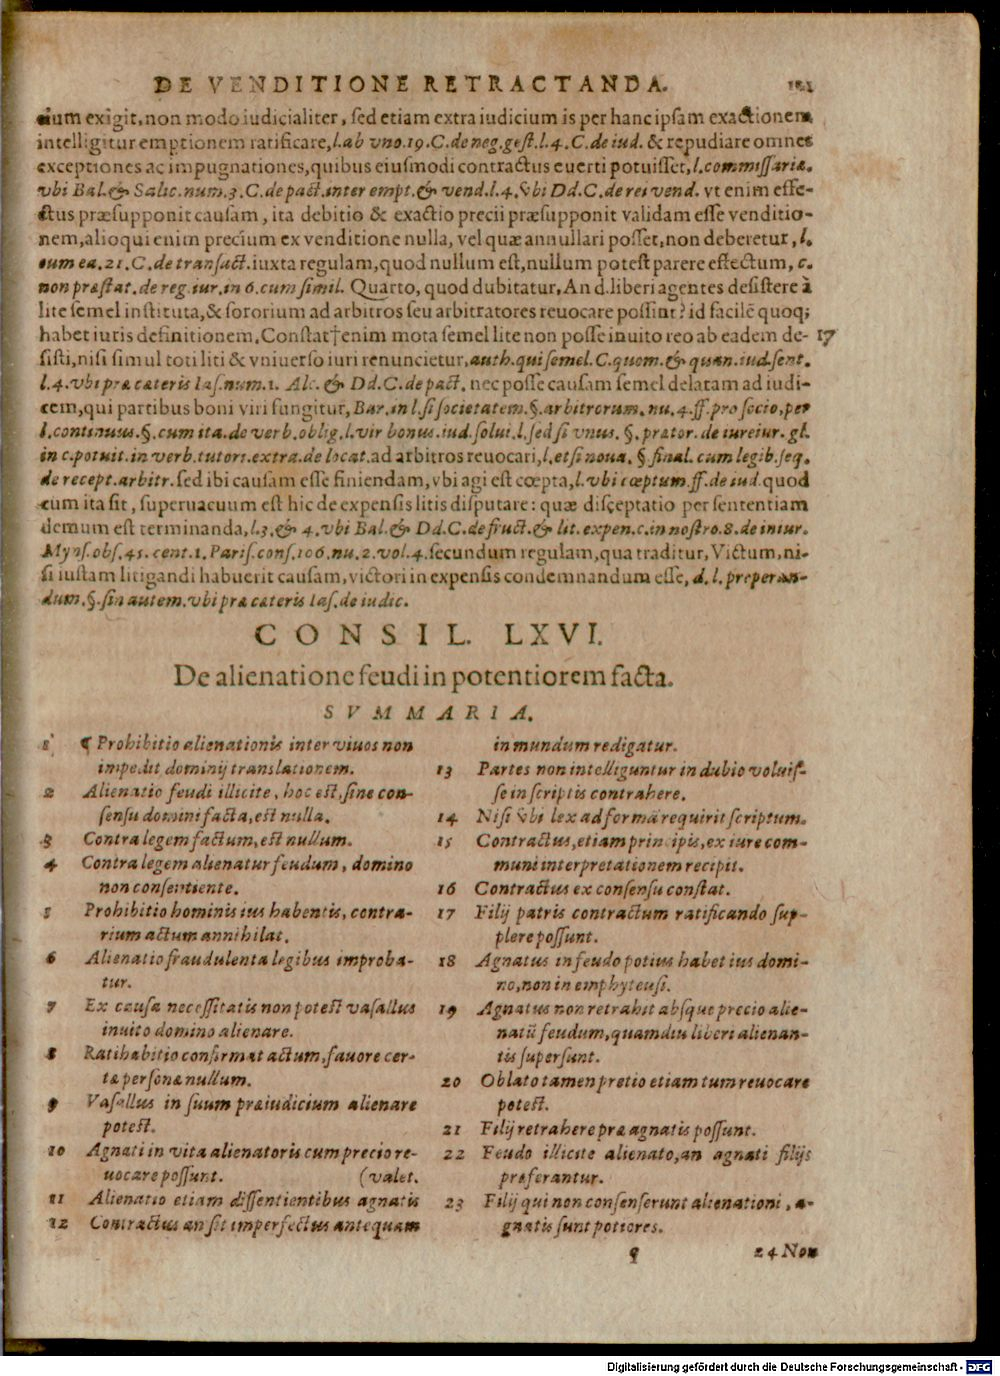 DE VENDITIONE RETRACTANDA. 121
cium exigit, non modo iudicialiter, sed etiam extra iudicium is per hanc ipsam exactionem
intelligitur emptionem ratificare, l. ab vno. 19. C. de neg. gest. l. 4. C. de iud. & repudiare omnes
exceptiones ac impugnationes, quibus eiusmodi contractus euerti potuisset, l. commissariæ.
vbi Bal. & Salic. num. 3. C. de pact. inter empt. & vend. l. 4. vbi Dd. C. de rei vend. vt enim effe-
ctus præsupponit causam, ita debitio & exactio precii præsupponit validam esse venditio-
nem, alioqui enim precium ex venditione nulla, vel quæ annullari posset, non deberetur, l.
cum ea. 21. C. de transact. iuxta regulam, quod nullum est, nullum potest parere effectum, c.
non præstat. de reg. iur. in 6. cum simil. Quarto, quod dubitatur, An d. liberi agentes desistere à
lite semel instituta, & sororium ad arbitros seu arbitratores reuocare possint? id facilè quoq;
habet iuris definitionem. Constat† enim mota semel lite non posse inuito reo ab eadem de- 17
sisti, nisi simul toti liti & vniuerso iuri renuncietur, auth. qui semel. C. quom. & quan. iud. sent.
l. 4. vbi præ cæteris Ias. num. 1. Alc. & Dd. C. de pact. nec posse causam semel delatam ad iudi-
cem, qui partibus boni viri fungitur, Bar. in l. si societatem. §. arbitrorum. nu. 4. ff. pro socio, per
l. continuus. §. cum ita. de verb. oblig. l. vir bonus. iud. solui. l. sed si vnus. §. prætor. de iureiur. gl.
in c. potuit. in verb. tutori. extra. de locat. ad arbitros reuocari, l. etsi noua. § final. cum legib. seq.
de recept. arbitr. sed ibi causam esse finiendam, vbi agi est cœpta, l. vbi cœptum. ff. de iud. quod
cum ita sit, superuacuum est hic de expensis litis disputare: quæ disceptatio per sententiam
demum est terminanda, l. 3. & 4. vbi Bal. & Dd. C. de fruct. & lit. expen. c. in nostro. 8. de iniur.
Myns. obs. 41. cent. 1. Paris. cons. 106. nu. 2. vol. 4. secundum regulam, qua traditur, Victum, ni-
si iustam litigandi habuerit causam, victori in expensis condemnandum esse, d. l. properan-
dum. §. sin autem. vbi præ cæteris Ias. de iudic.
CONSIL. LXVI.
De alienatione feudi in potentiorem facta.
SVMMARIA.
1 ¶ Prohibitio alienationis inter viuos non
impedit dominij translationem.
2 Alienatio feudi illicite, hoc est, sine con-
sensu domini facta, est nulla.
3 Contra legem factum, est nullum.
4 Contra legem alienatur feudum, domino
non consentiente.
5 Prohibitio hominis ius habentis, contra-
rium actum annihilat.
6 Alienatio fraudulenta legibus improba-
tur.
7 Ex causa necessitatis non potest vasallus
inuito domino alienare.
8 Ratihabitio confirmat actum, fauore cer-
tæ personæ nullum.
9 Vasallus in suum præiudicium alienare
potest.
10 Agnati in vita alienatoris cum precio re-
uocare possunt. (valet.
11 Alienatio etiam dissentientibus agnatis
12 Contractus an sit imperfectus antequam
in mundum redigatur.
13 Partes non intelliguntur in dubio voluis-
se in scriptis contrahere.
14 Nisi vbi lex ad formā requirit scriptum.
15 Contractus, etiam principis, ex iure com-
muni interpretationem recipit.
16 Contractus ex consensu constat.
17 Filij patris contractum ratificando sup-
plere possunt.
18 Agnatus in feudo potius habet ius domi-
no, non in emphyteusi.
19 Agnatus non retrahit absque precio alie-
natū feudum, quamdiu liberi alienan-
tis supersunt.
20 Oblato tamen pretio etiam tum reuocare
potest.
21 Filij retrahere præ agnatis possunt.
22 Feudo illicite alienato, an agnati filijs
præferantur.
23 Filij qui non consenserunt alienationi, a-
gnatis sunt potiores.
q 24 Non
Digitalisierung gefördert durch die Deutsche Forschungsgemeinschaft - DFG